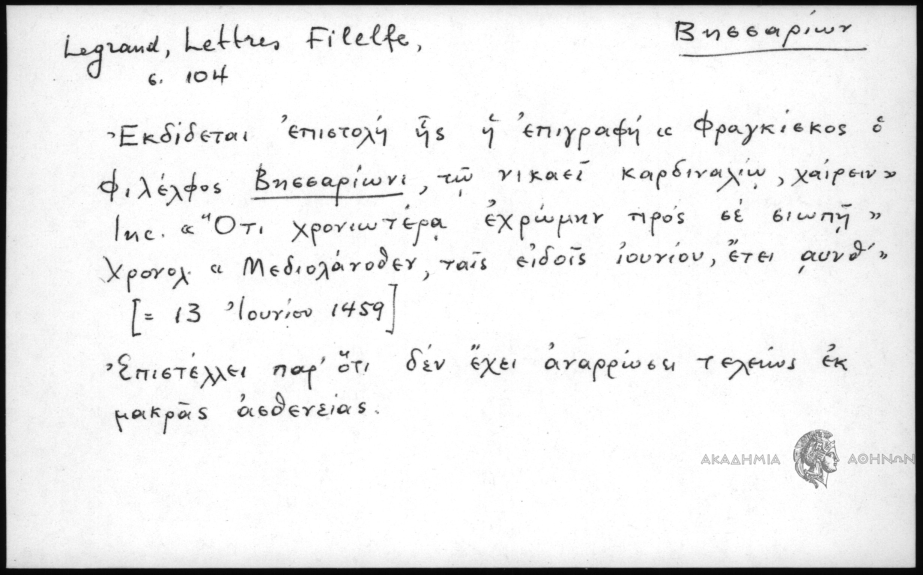 Legrand, Lettres Filelfe,
Βησσαρίων
σ. 104
Ἐκδίδεται ἐπιστολή ἧς ἡ ἐπιγραφή «Φραγκίσκος ὁ
Φιλέλφος Βησσαρίωνι, τῷ νικαεῖ καρδιναλίῳ, χαίρειν»
Inc. «Ὅτι χρονιωτέρᾳ ἐχρώμην πρός σέ σιωπῇ»
Χρονολ. «Μεδιολάνοθεν, ταῖς εἰδοῖς ἰουνίου, ἔτει ͵αυνθʹ»
[= 13 Ἰουνίου 1459]
Ἐπιστέλλει παρ' ὅτι δέν ἔχει ἀναρρώσει τελείως ἐκ
μακρᾶς ἀσθενείας.
ΑΚΑΔΗΜΙΑ ΑΘΗΝΩΝ